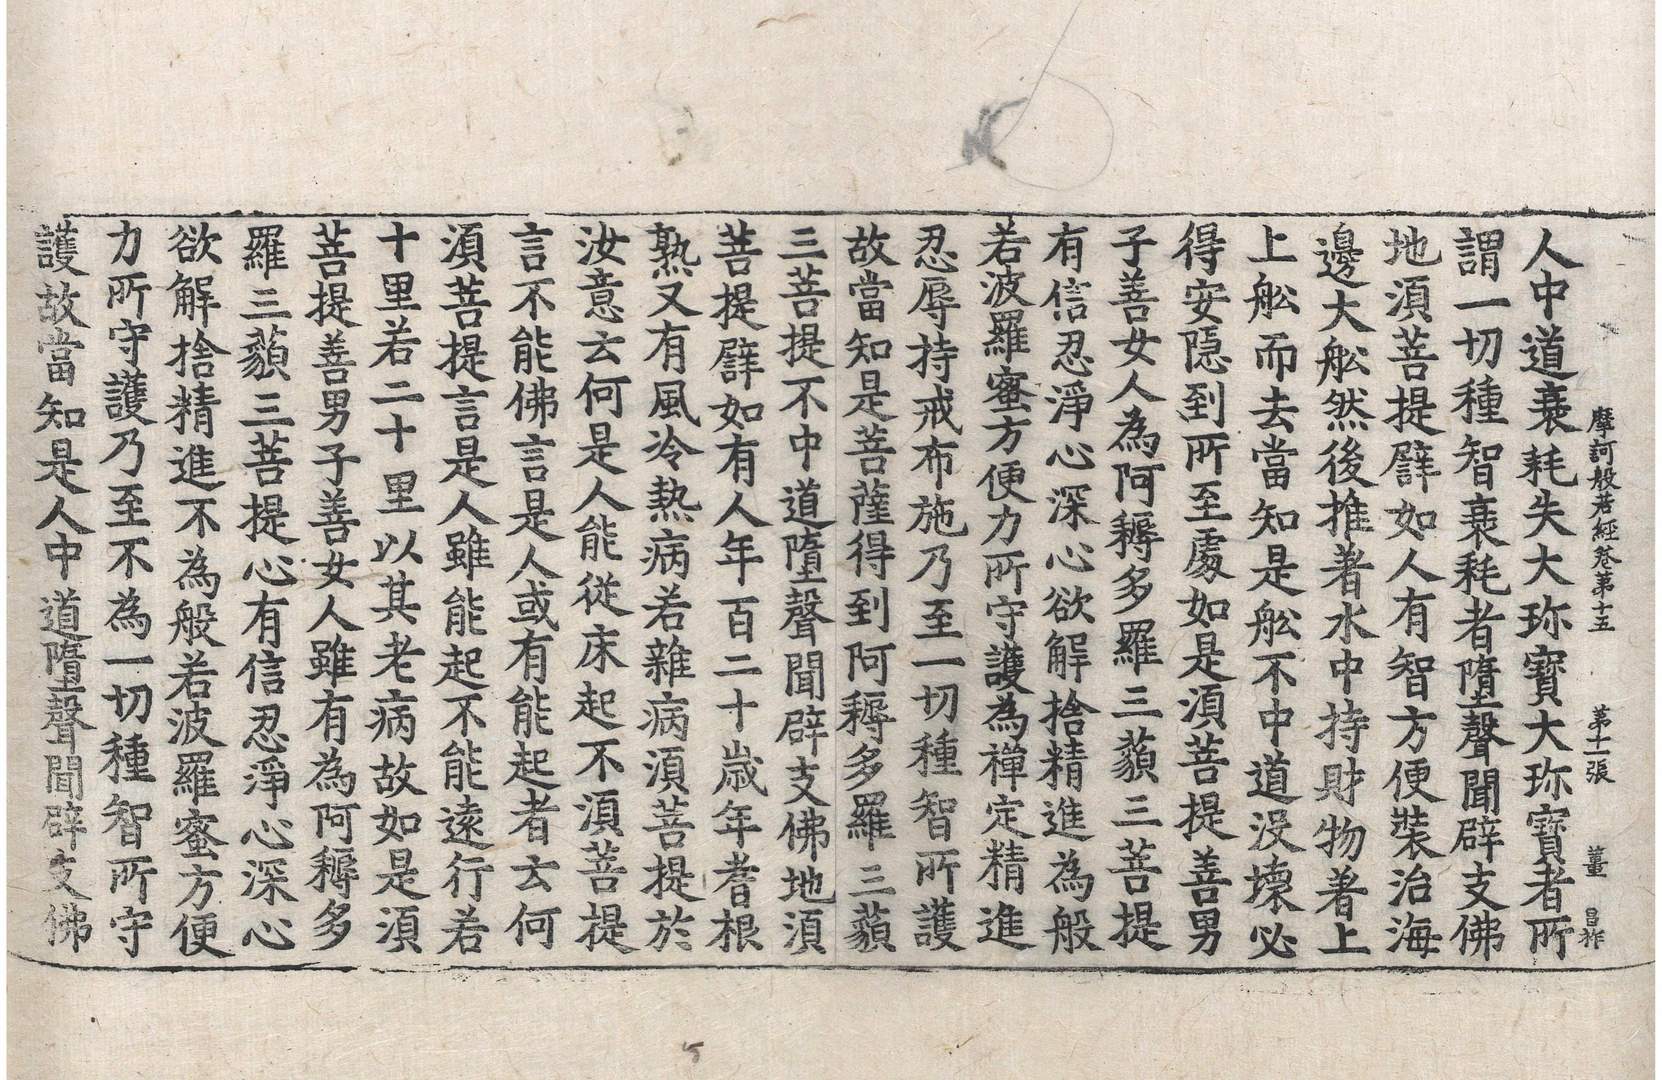 摩訶般若經卷第十五　第十一張　董　昌祚
人中道衰耗失大珎寶大珎寶者所
謂一切種智衰耗者墮聲聞辟支佛
地湏菩提譬如人有智方便裝治海
邊大舩然後推著水中持財物著上
上舩而去當知是舩不中道没壞必
得安隱到所至處如是湏菩提善男
子善女人為阿耨多羅三藐三菩提
有信忍淨心深心欲解捨精進為般
若波羅蜜方便力所守護為禪定精進
忍辱持戒布施乃至一切種智所護
故當知是菩薩得到阿耨多羅三藐
三菩提不中道墮聲聞辟支佛地湏
菩提譬如有人年百二十歲年耆根
熟又有風冷熱病若雜病湏菩提於
汝意云何是人能從床起不湏菩提
言不能佛言是人或有能起者云何
湏菩提言是人雖能起不能遠行若
十里若二十里以其老病故如是湏
菩提善男子善女人雖有為阿耨多
羅三藐三菩提心有信忍淨心深心
欲解捨精進不為般若波羅蜜方便
力所守護乃至不為一切種智所守
護故當知是人中道墮聲聞辟支佛